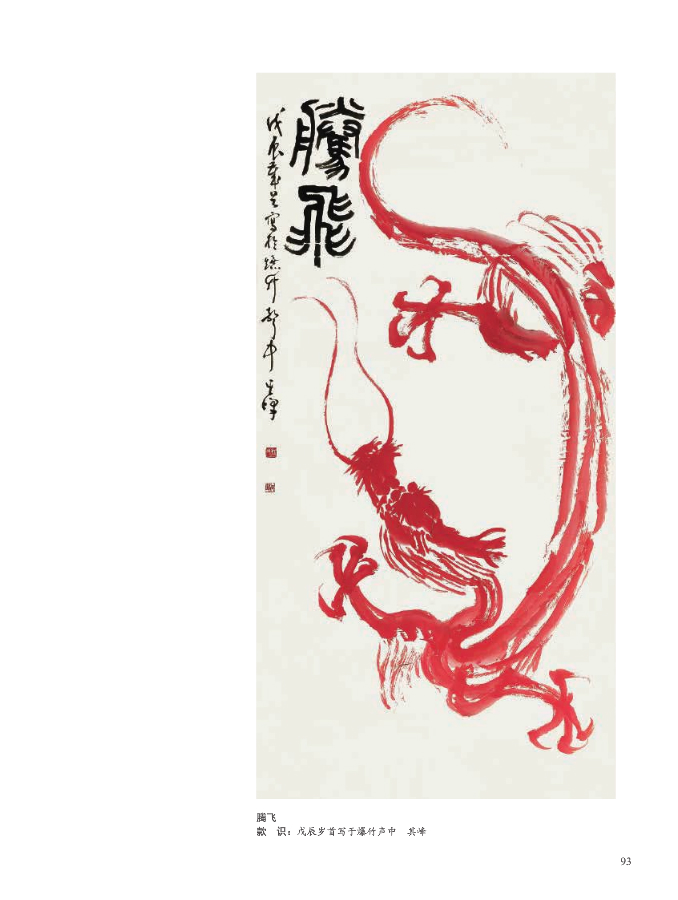 騰飛
戊辰歲首寫於爆竹聲中 其峰
腾飞
款　识：戊辰岁首写于爆竹声中　其峰
93